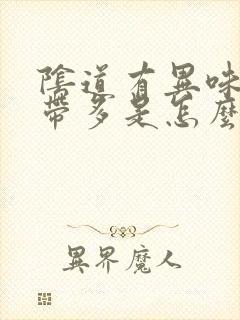 陰道有異味
帶多是怎麼
異界魔人